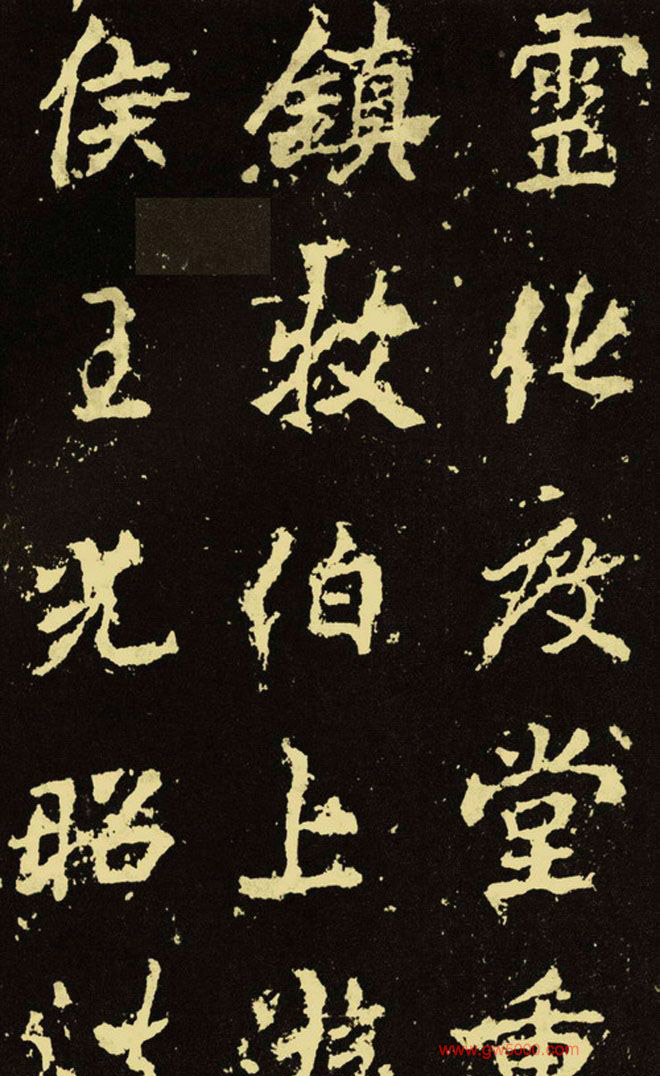 靈化度堂重
鎮牧伯上游
侯王光昭法
www.gw5000.com